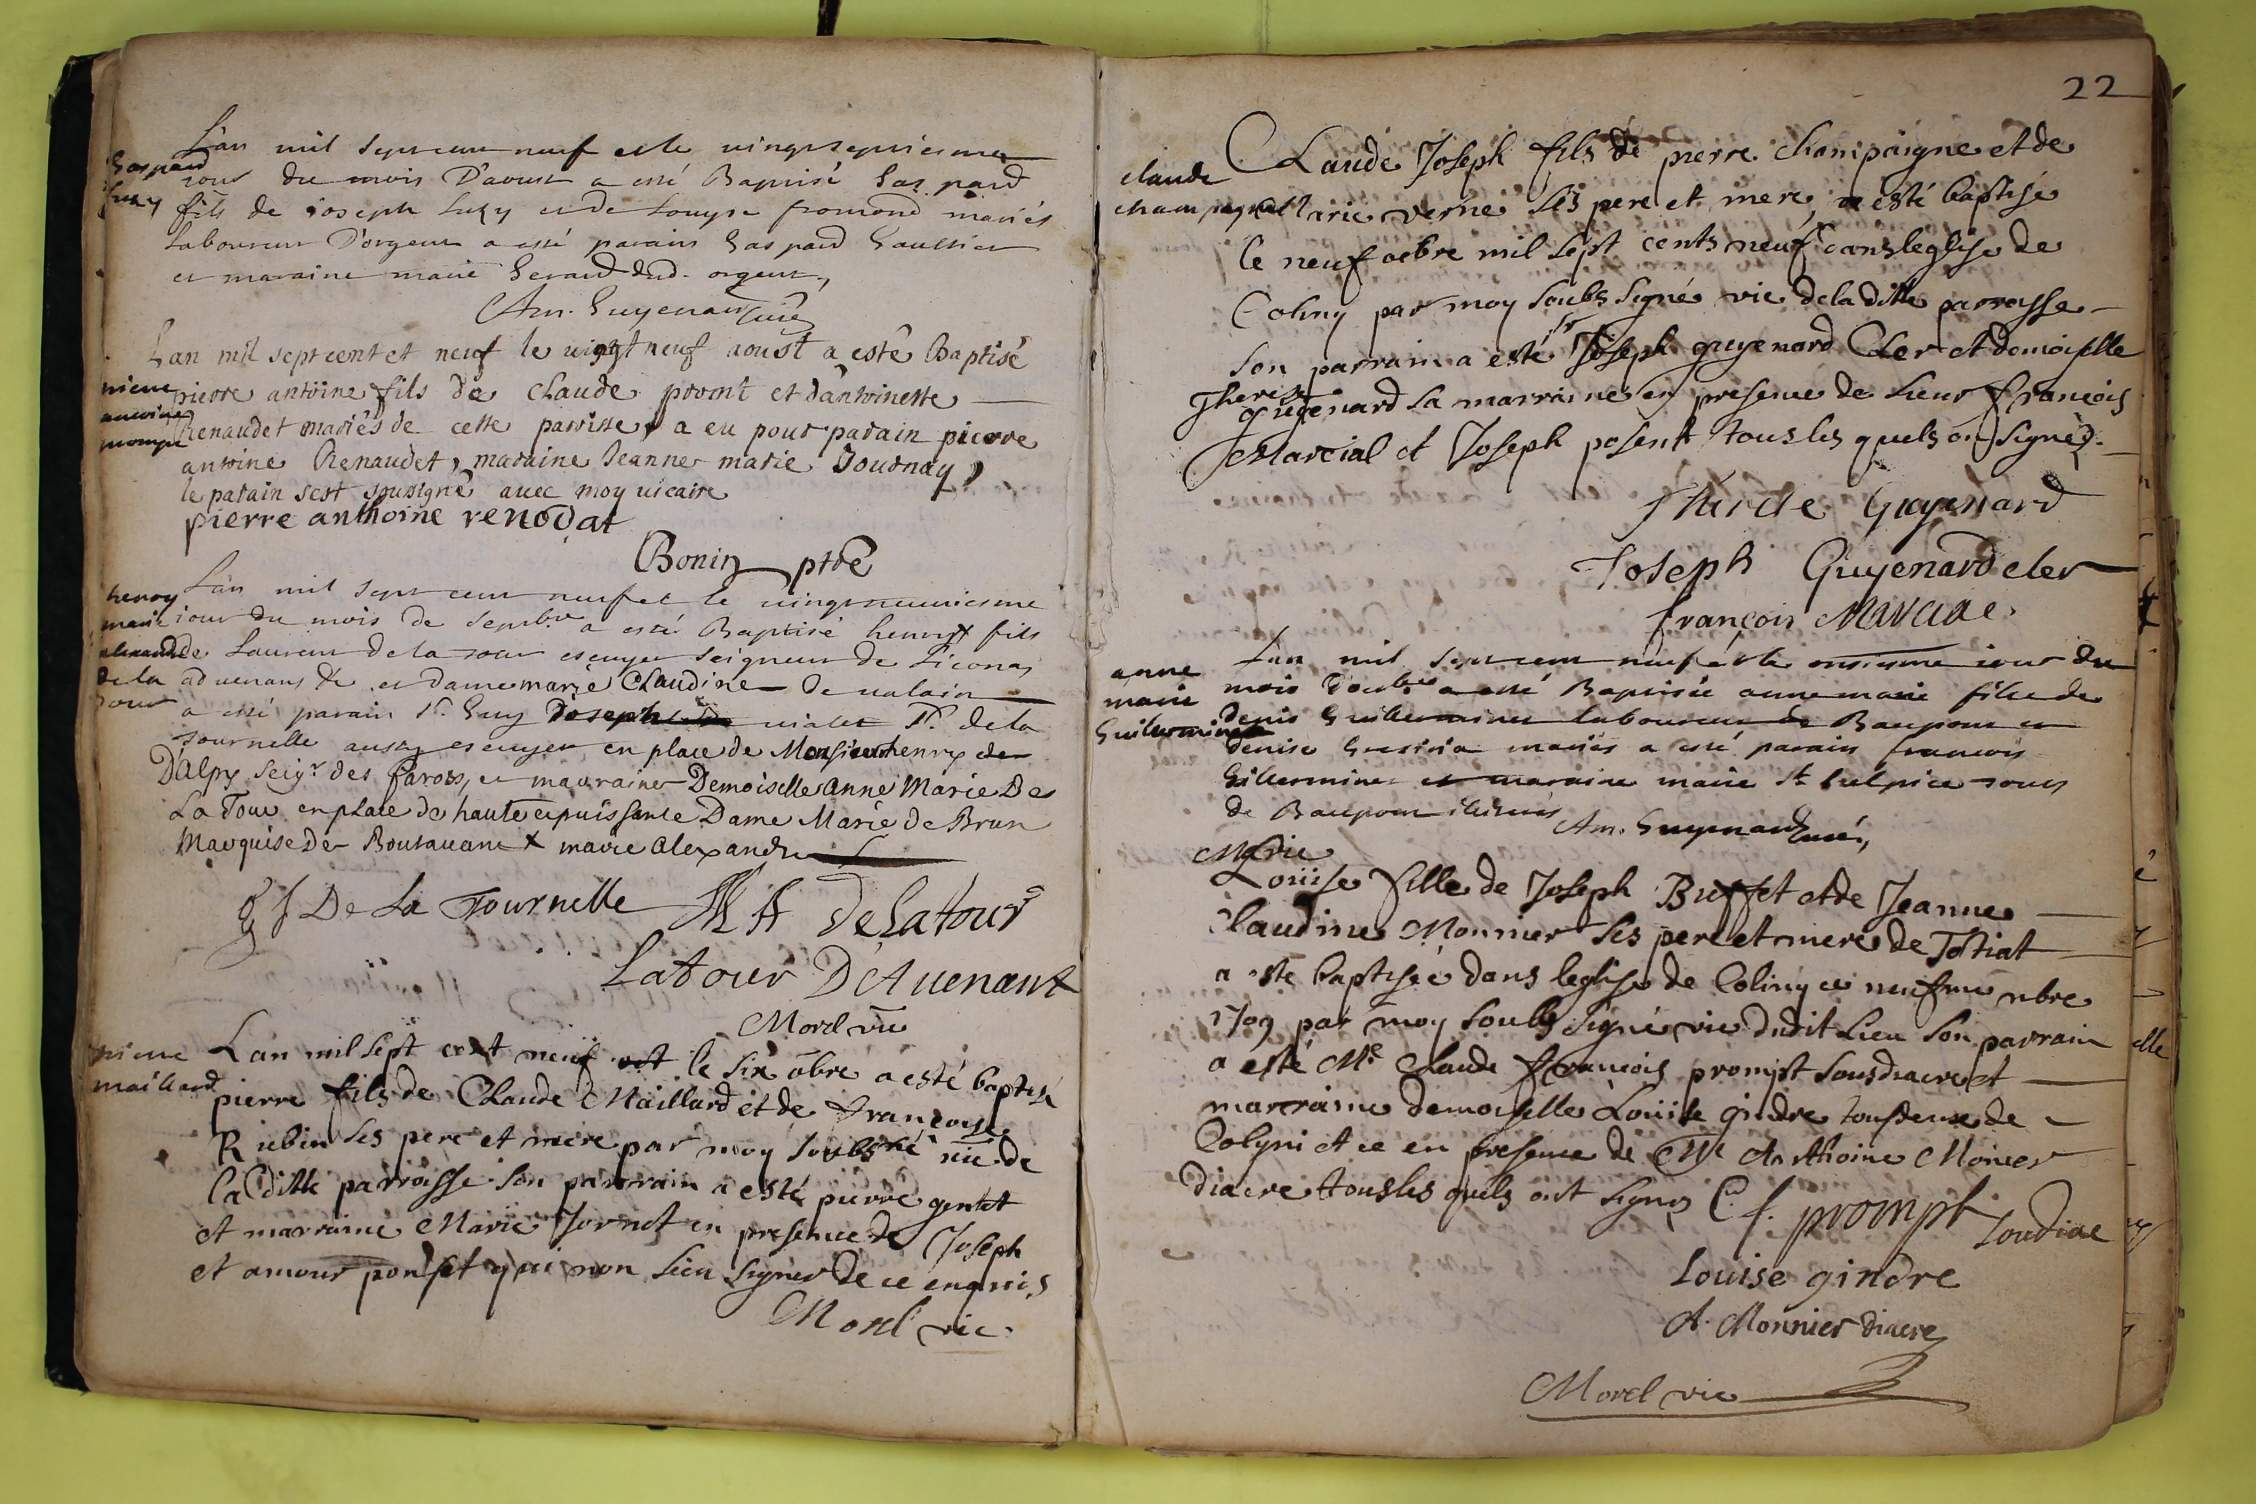 Gaspard
Luzy
L'an mil sept cent neuf et le vingt septiesme
jour du mois D'aoust a esté Baptisé Gaspard
fils de joseph Luzy et de Louyse fromond mariés
Laboureur D'orgent a esté parain Gaspard Gaultier
et maraine marie Gerard dud. orgent,
Am. Guyenard curé
L'an mil sept cent et neuf le vingt neuf aoust a esté Baptisé
pierre
antoine
prompt
pierre antoine fils de claude promt et dantoinette
Renaudet mariés de cette paroisse, a eu pour parain pierre
antoine Renaudet, maraine Jeanne marie Tournay,
le parain sest sousigné avec moy vicaire
pierre anthoine renodat
Bonin ptre
henry
marie
alexandre
de la
tour
L'an mil sept cent neuf et le vingt neuviesme
jour du mois de sepmbre a esté Baptisé henry x fils
de Laurent de la tour escuyer seigneur de
advenans &c et dame marie Claudine De valain
a esté parain Sr. Guy Joseph vialet Sr. de la
tournelle aussy escuyer en place de Monsieur henry de
D'alpy seigr des faross, et marraine Demoiselle Anne Marie De
La Tour en place de haute et puissante Dame Marie de Brun
Marquise De Boutavant x marie alexandre
g J De La Tournelle A De La tour
Latour D'Avenant
Morel vic
pierre
maillard
L'an mil sept cent neuf et le six obre a esté baptisé
pierre fils de Claude Maillard et de françoise
Rubin ses pere et mere par moy soubsné vic de
la ditte parroisse son parrain a esté pierre gentet
et marraine Marie Jornet en presence de Joseph
et amour ponset qui non sceu signer de ce enquis
Morel vic.
22
claude
champagne
Claude Joseph fils de pierre champaigne et de
Marie verne ses pere et mere, a esté baptisé
le neuf octbre mil sept cents neuf dans leglise de
Coliny par moy soubs signé vic de la ditte parroisse
son parrain a esté Sr Joseph guyenard Cler et demoiselle
Therese guyenard sa marraine en presence de sieur françois
Marcial et Joseph posent tous les quels on signéz.
Therese Guyenard
Joseph Guyenard cler
françois Marcial
anne
marie
Guillerminet
L'an mil sept cent neuf et le onsiesme jour du
mois d'octbre a esté Baptisée anne marie fille de
denis Guillerminet laboureur de Baupont et
denise mariés a esté parain francois
Gillerminet et maraine marie St. Sulpice tous
de Baupont illiterés Am. Guyenard curé,
Marie
Loüise fille de Joseph Buffet et de Jeanne
Claudine Monnier ses pere et mere de Tostiat
a esté baptisée dans leglise de Coliny ce neufme nbre
1709 par moy soubs signé vic dudit Lieu son parrain
a esté Mre Claude françois prompt sousdiacre et
marraine demoiselle Loüise gindre tous deux de
Colyni et ce en presence de Mre Anthoine Monier
diacre tous les quels ont signez C. f. prompt soudiac
Louise gindre
A. Monnier diacre
Morel vic
elle